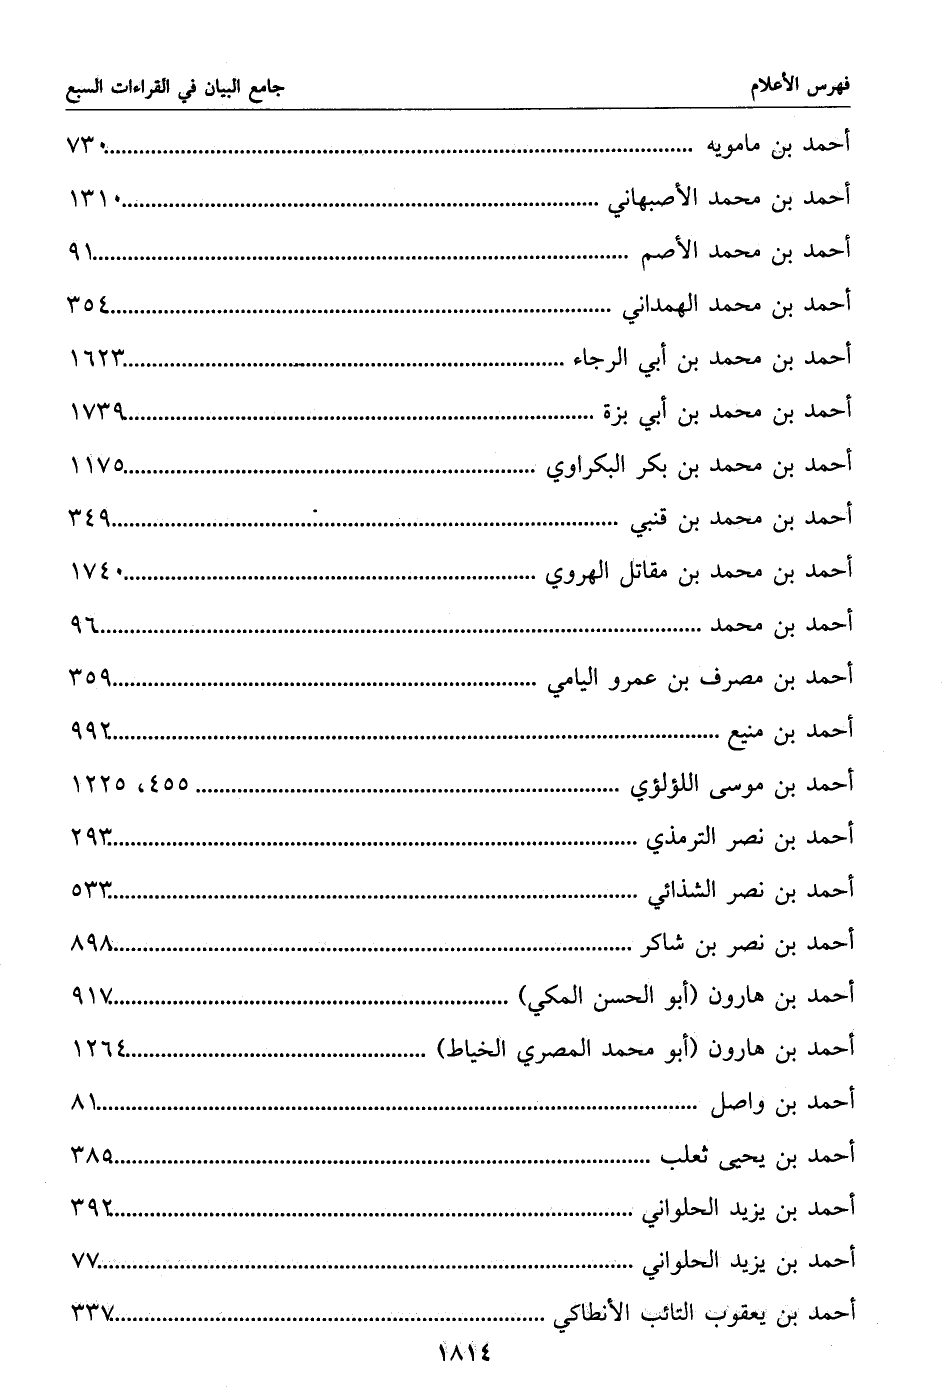 فهرس الأعلام جامع البيان في القراءات السبع
أحمد بن مامويه ........ ٧٣٠
أحمد بن محمد الأصبهاني ........ ١٣١٠
أحمد بن محمد الأصم ........ ٩١
أحمد بن محمد الهمداني ........ ٣٥٤
أحمد بن محمد بن أبي الرجاء ........ ١٦٢٣
أحمد بن محمد بن أبي بزة ........ ١٧٣٩
أحمد بن محمد بن بكر البكراوي ........ ١١٧٥
أحمد بن محمد بن قنبي ........ ٣٤٩
أحمد بن محمد بن مقاتل الهروي ........ ١٧٤٠
أحمد بن محمد ........ ٩٦
أحمد بن مصرف بن عمرو اليامي ........ ٣٥٩
أحمد بن منيع ........ ٩٩٢
أحمد بن موسى اللؤلؤي ........ ٤٥٥، ١٢٢٥
أحمد بن نصر الترمذي ........ ٢٩٣
أحمد بن نصر الشذائي ........ ٥٣٣
أحمد بن نصر بن شاكر ........ ٨٩٨
أحمد بن هارون (أبو الحسن المكي) ........ ٩١٧
أحمد بن هارون (أبو محمد المصري الخياط) ........ ١٢٦٤
أحمد بن واصل ........ ٨١
أحمد بن يحيى ثعلب ........ ٣٨٥
أحمد بن يزيد الحلواني ........ ٣٩٢
أحمد بن يزيد الحلواني ........ ٧٧
أحمد بن يعقوب التائب الأنطاكي ........ ٣٣٧
١٨١٤